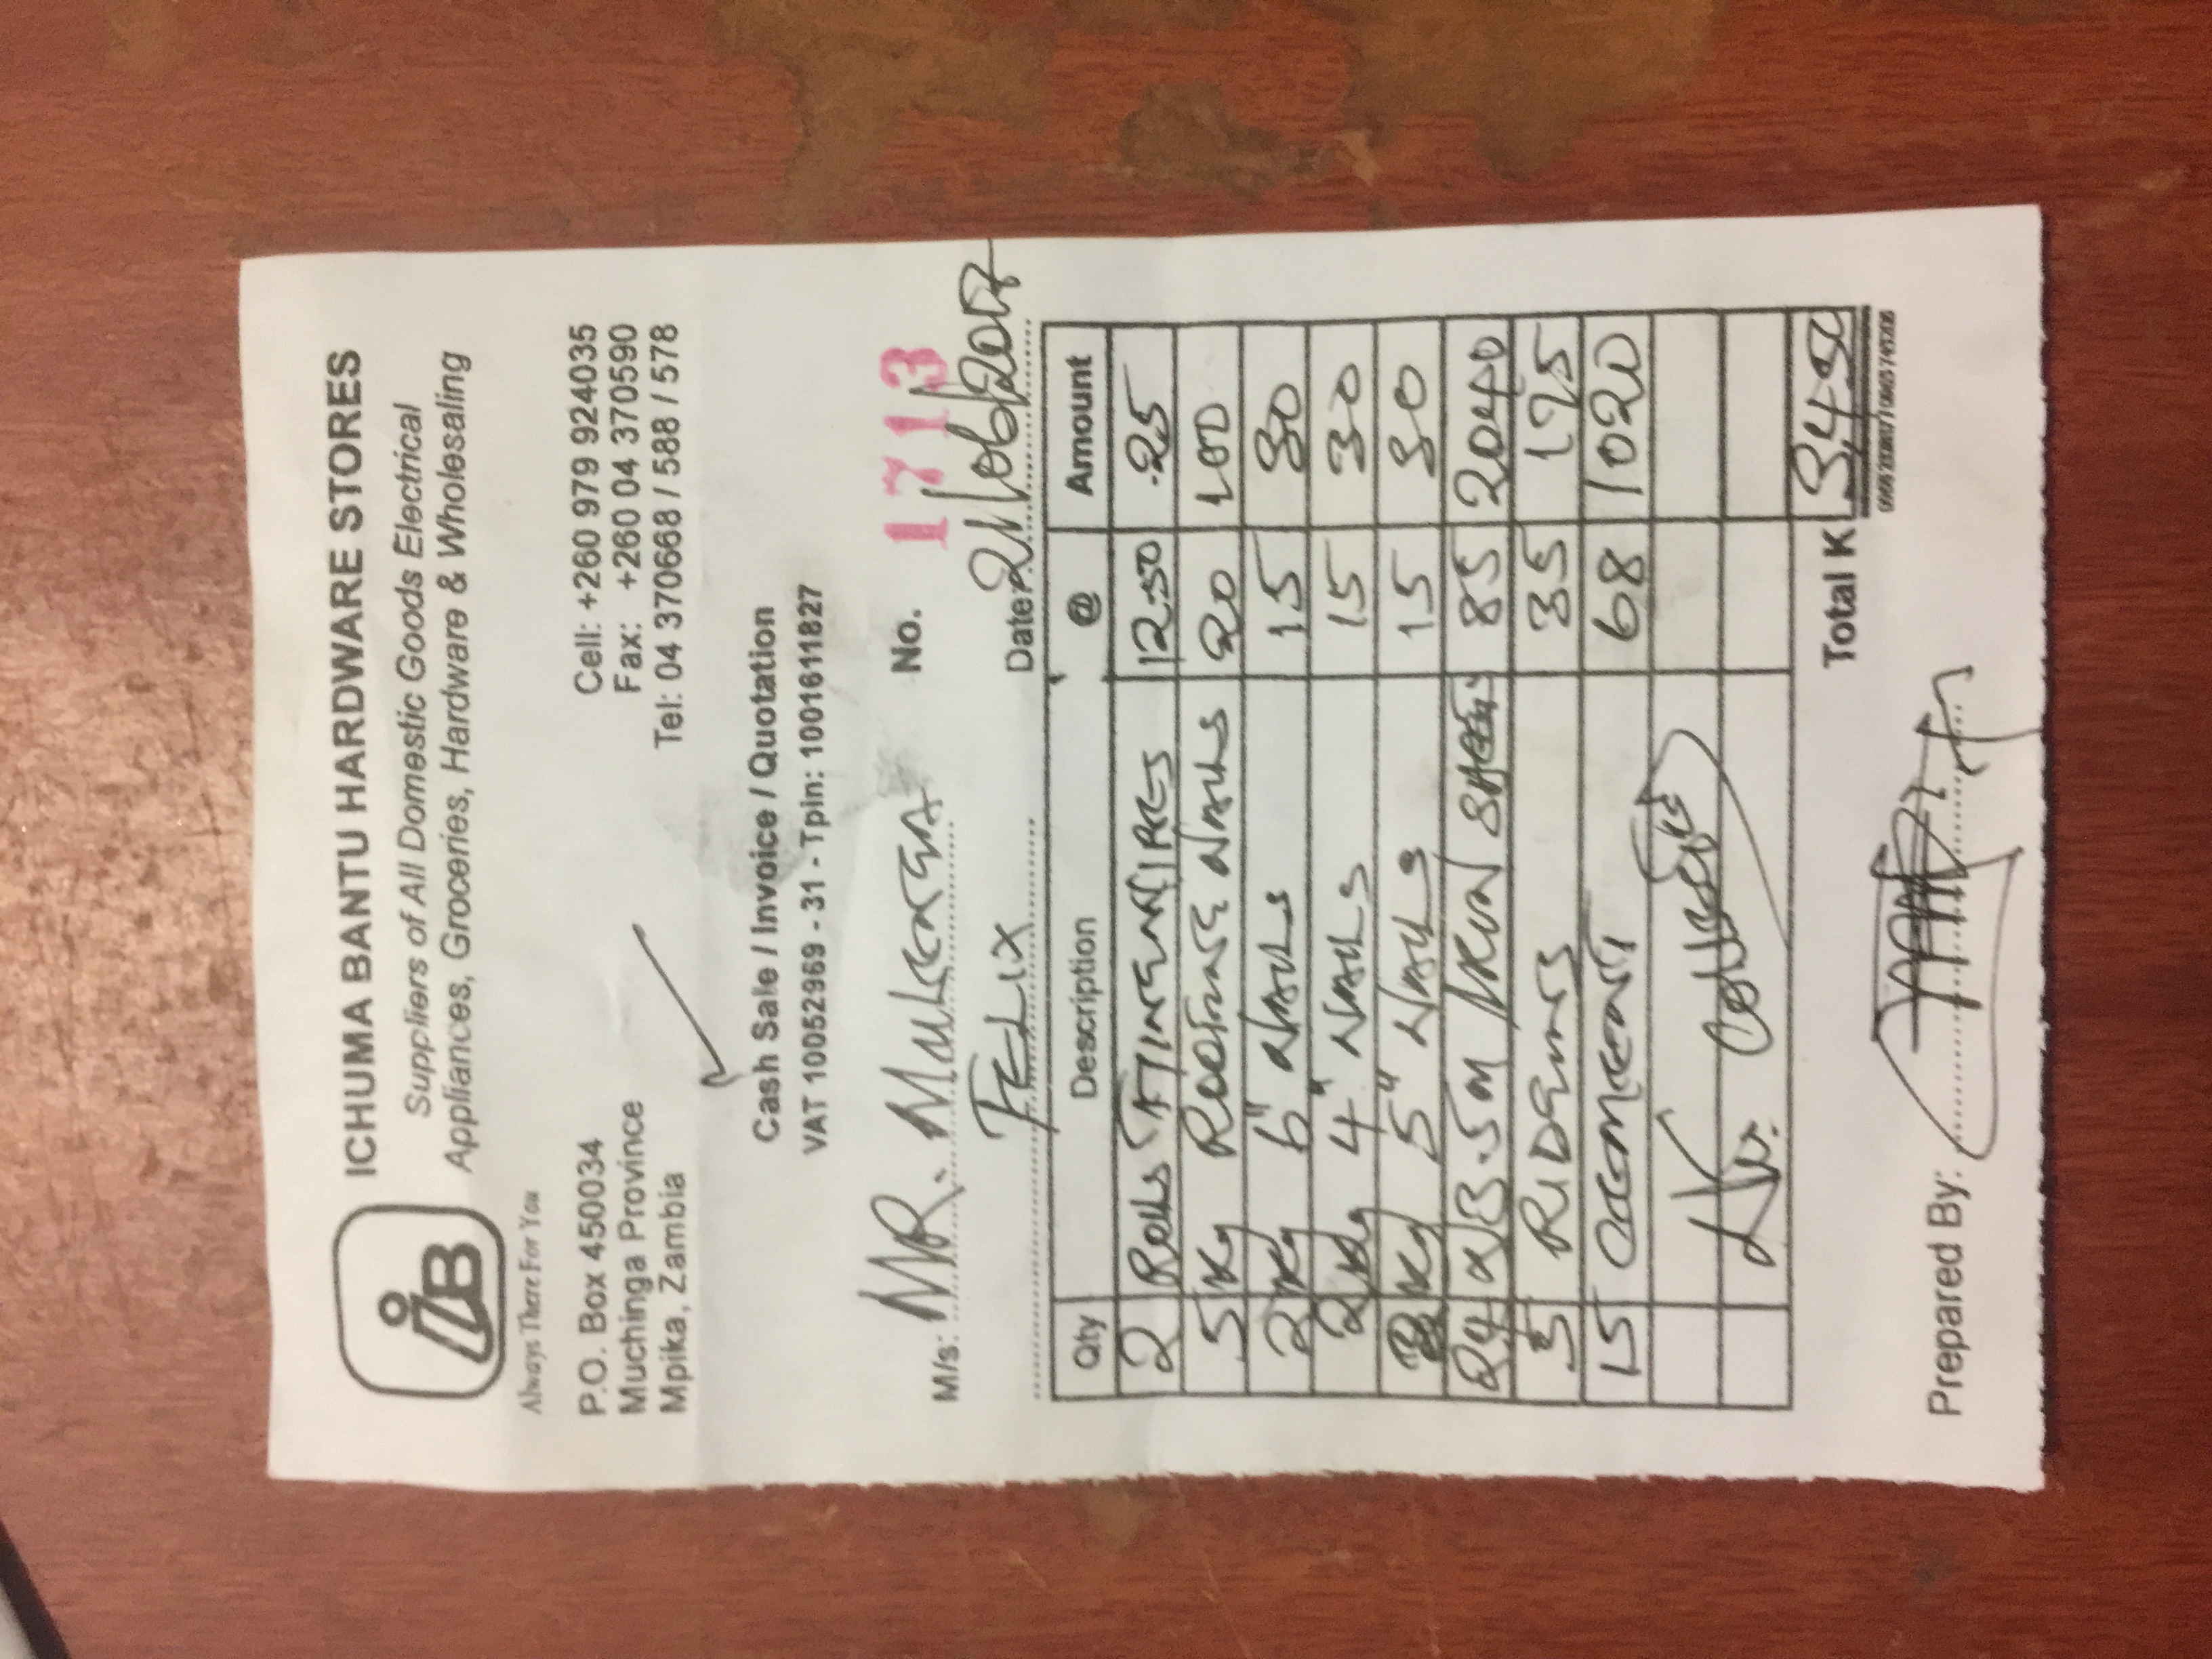 ICHUMA BANTU HARDWARE STORES
Suppliers of All Domestic Goods Electrical
Appliances, Groceries, Hardware & Wholesaling
iB
Always There For You
P.O. Box 450034
Muchinga Province
Mpika, Zambia
Cell: +260 979 924035
Fax: +260 04 370590
Tel: 04 370668 / 588 / 578
Cash Sale / Invoice / Quotation
VAT 10052969 - 31 - Tpin: 1001611827
M/s: MR.
No. 1713
FELIX
Date:
Qty Description @ Amount
2 Rolls 12:50 25
5 Kg Roofing Nails 20 100
2 Kg 6" Nails 15 30
2 Kg 4" Nails 15 30
2 Kg 5" Nails 15 30
24 x 3.5m IRON 85 2040
5 35 175
15 CEMENT 68 1020
Total K 3450
Prepared By: